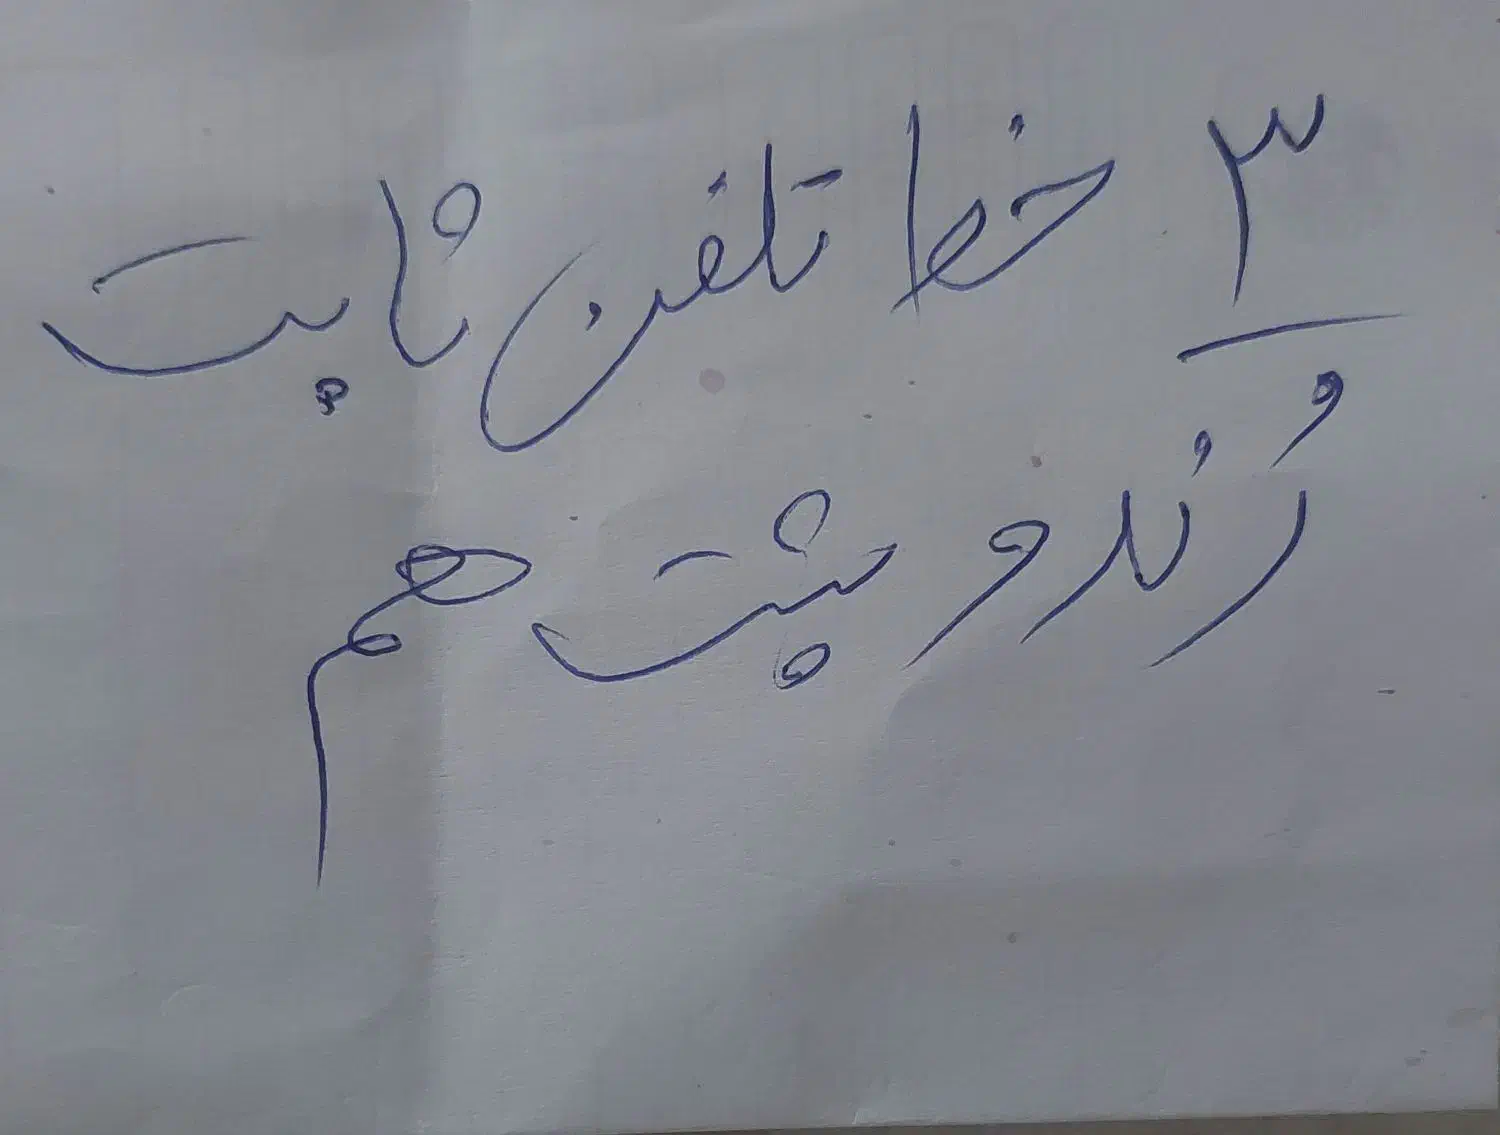 ۳ خط تلفن ثابت
رُند و پشت هم